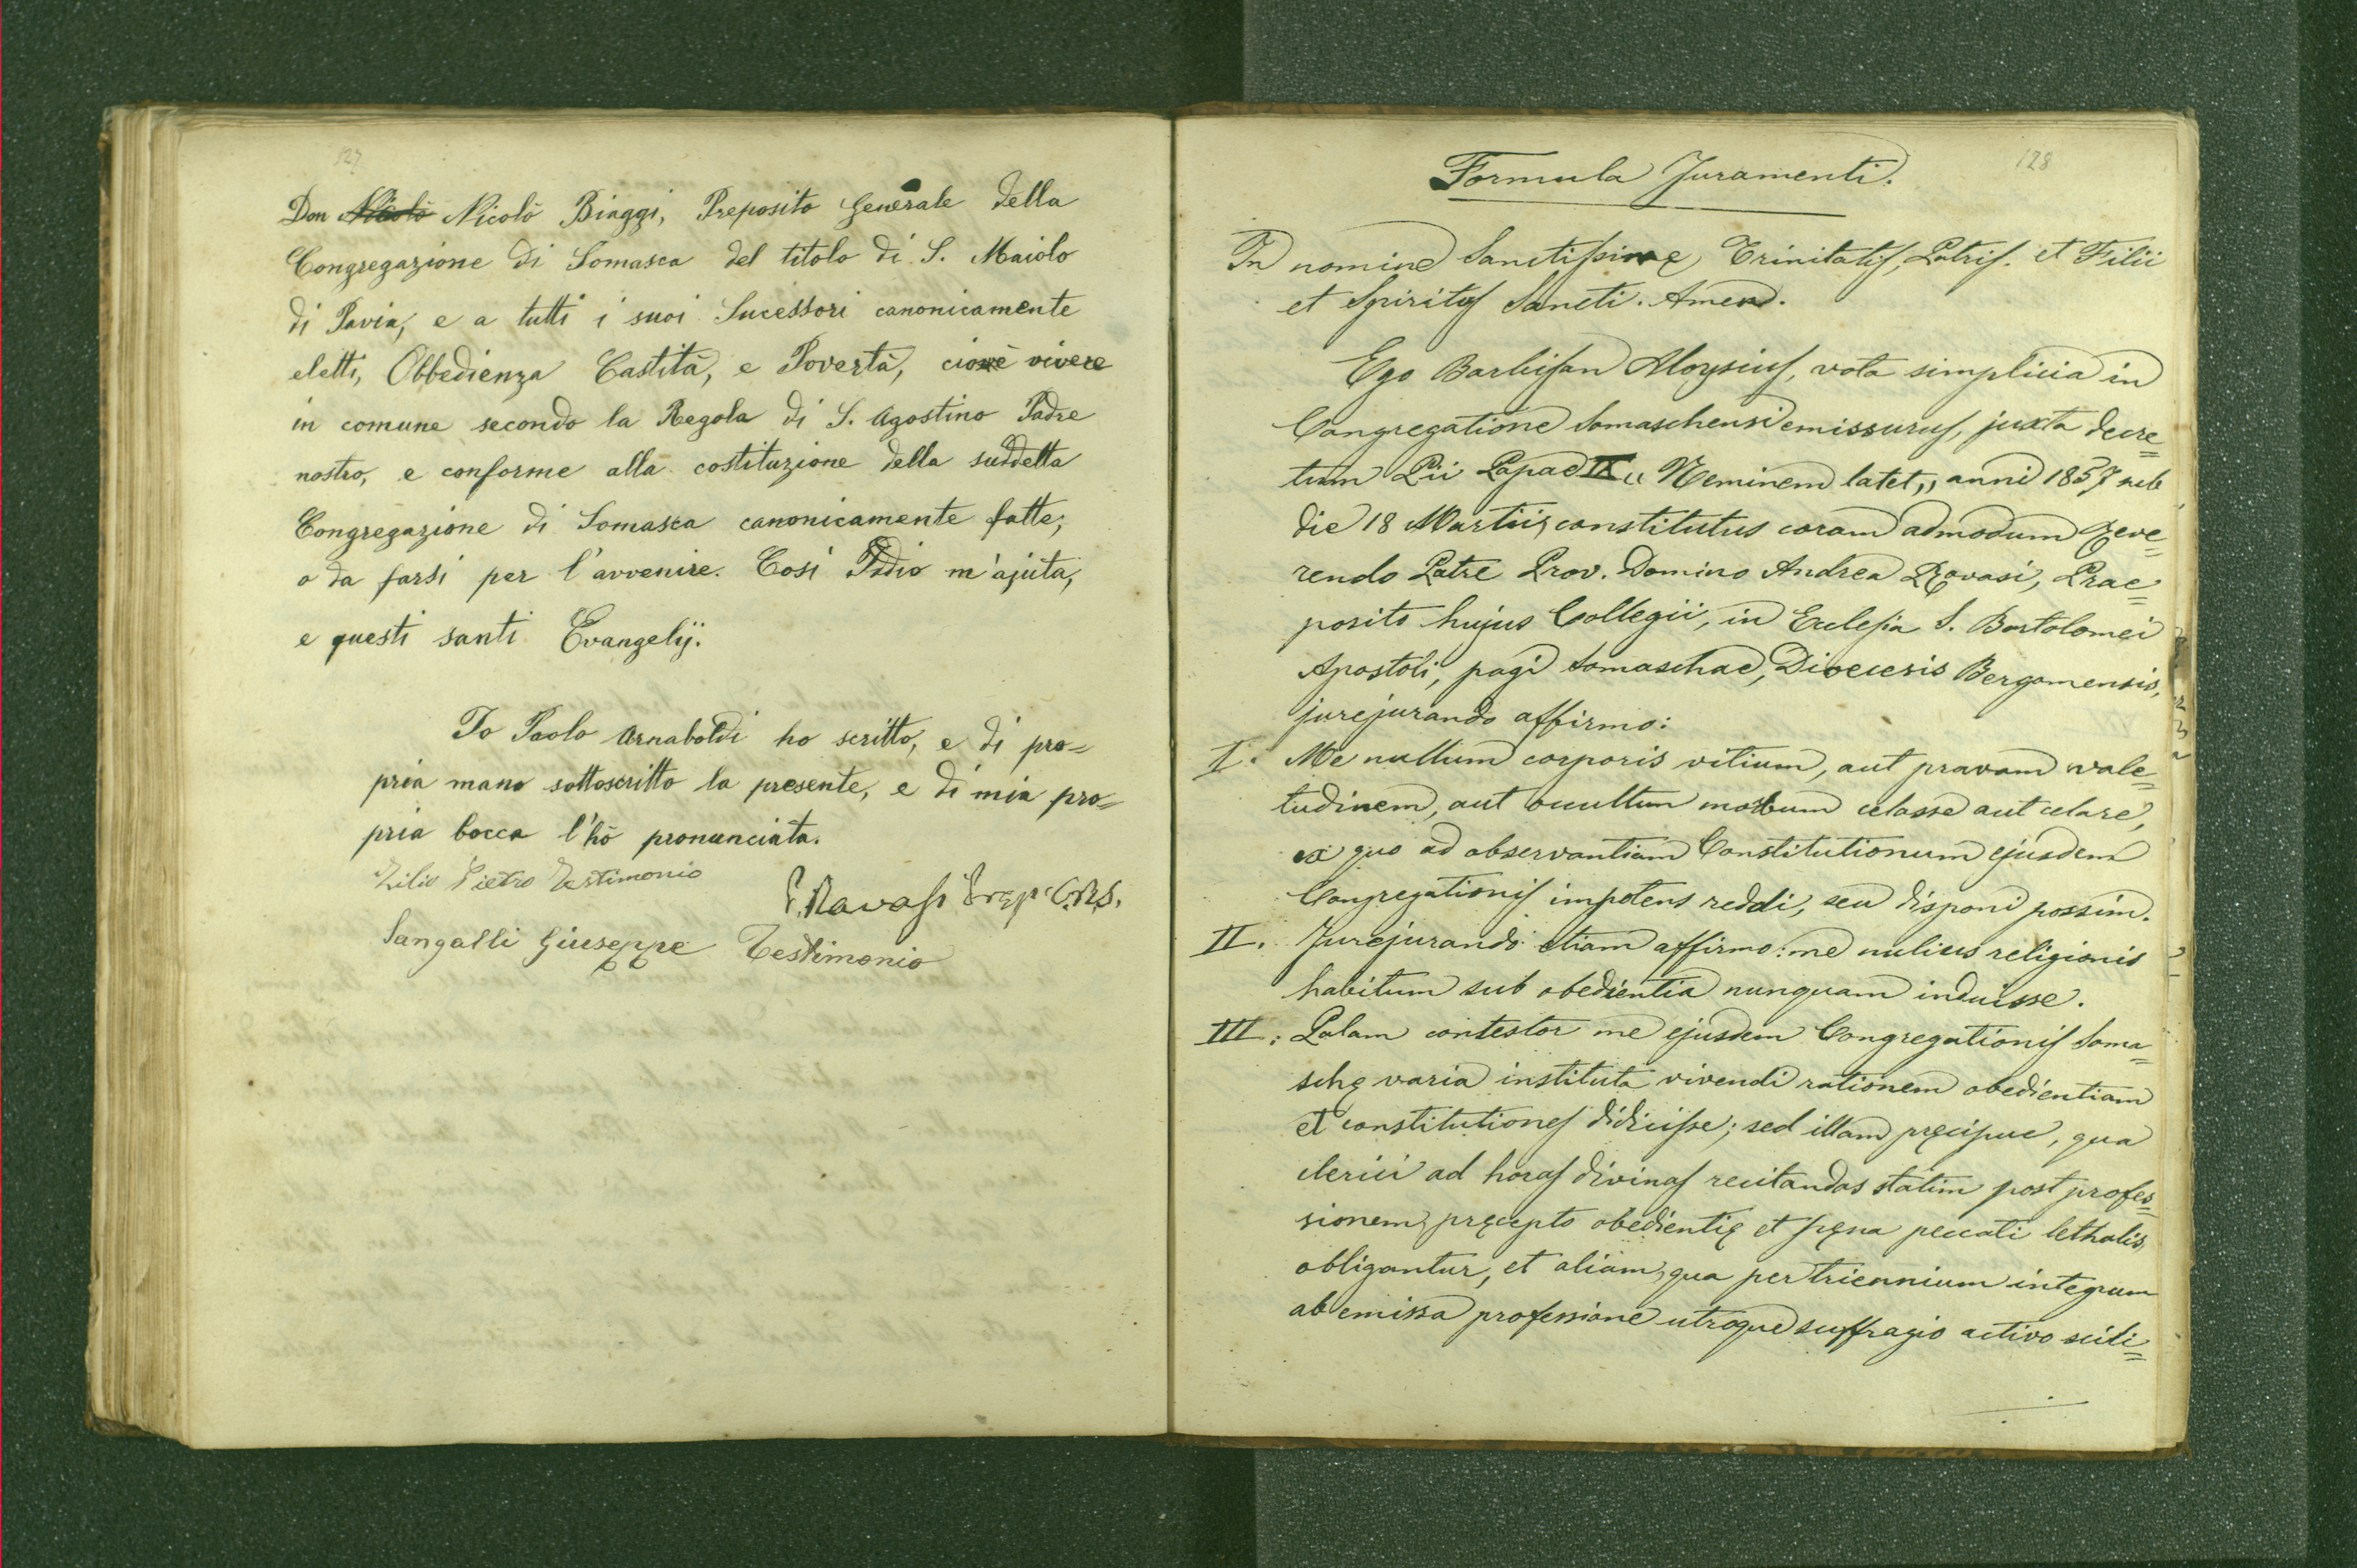 127
Don Nicolò Nicolò Biaggi, Preposito Generale della
Congregazione di Somasca del titolo di S. Maiolo
di Pavia, e a tutti i suoi Sucessori canonicamente
eletti, Obbedienza Castità, e Povertà, cioè vivere
in comune secondo la Regola di S. Agostino Padre
nostro, e conforme alla costituzione della suddetta
Congregazione di Somasca canonicamente fatte;
o da farsi per l'avvenire. Così Iddio m'ajuta,
e questi santi Evangelij.
Io Paolo Arnaboldi ho scritto, e di pro=
pria mano sottoscritto la presente, e di mia pro=
pria bocca l'hò pronunciata.
Zilio Pietro Testimonio
P. Ravasi Prep. C.R.S.
Sangalli Giuseppe Testimonio
128
Formula Juramenti.
In nomine Sanctissimę Trinitatis, Patris. et Filii
et Spiritus Sancti. Amen.
Ego Barbisan Aloysius, vota simplicia in
Congregatione Somaschensi emissurus, juxta decre=
tum Pii Papae IX „ Neminem latet„ anni 1857 sub
die 18 Martii, constitutus coram admodum Reve=
rendo Patre Prov. Domino Andrea Ravasi, Prae=
posito hujus Collegii, in Eclesia S. Bartolomei
Apostoli, pagi Somaschae, Dioecesis Bergomensis,
jurejurando affirmo:
I. Me nullum corporis vitium, aut pravam vale=
tudinem, aut occultum morbum celasse aut celare,
ex quo ad observantiam Constitutionum ejusdem
Congregationis impotens reddi, seu disponi possim.
II. Jurejurando etiam affirmo: me nulius religionis
habitum sub obedientia nunquam induisse.
III. Palam contestor me ejusdem Congregationis Soma=
schę varia instituta vivendi rationem obedientiam
et constitutiones didicisse; sed illam pręcipue, qua
clerici ad horas divinas recitandas statim post profes=
sionem, pręcepto obedientię et pęna peccati lethalis,
obligantur, et aliam, qua per triennium integrum
ab emissa professione utroque suffragio activo scili=